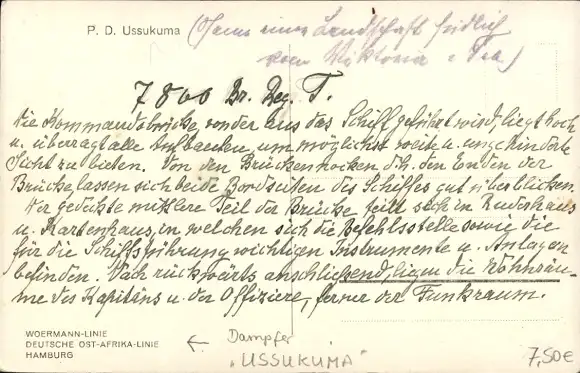 P. D. Ussukuma (Name einer Landschaft südlich
vom Viktoria-See)
7800 Br. Reg. T.
Die Kommandobrücke, von der aus das Schiff geführt wird, liegt hoch
u. überragt alle Aufbauten, um möglichst weite u. ungehinderte
Sicht zu bieten. Von den Brückennocken d.h. den Enden der
Brücke lassen sich beide Bordseiten des Schiffes gut überblicken.
Der gedeckte mittlere Teil der Brücke teilt sich in Ruderhaus
u. Kartenhaus, in welchen sich die Befehlsstelle sowie die
für die Schiffsführung wichtigen Instrumente u. Anlagen
befinden. Nach rückwärts anschließend, liegen die Wohnräu-
me des Kapitäns u. der Offiziere, ferner der Funkraum.
WOERMANN-LINIE
DEUTSCHE OST-AFRIKA-LINIE
HAMBURG
← Dampfer
"USSUKUMA"
7,50€